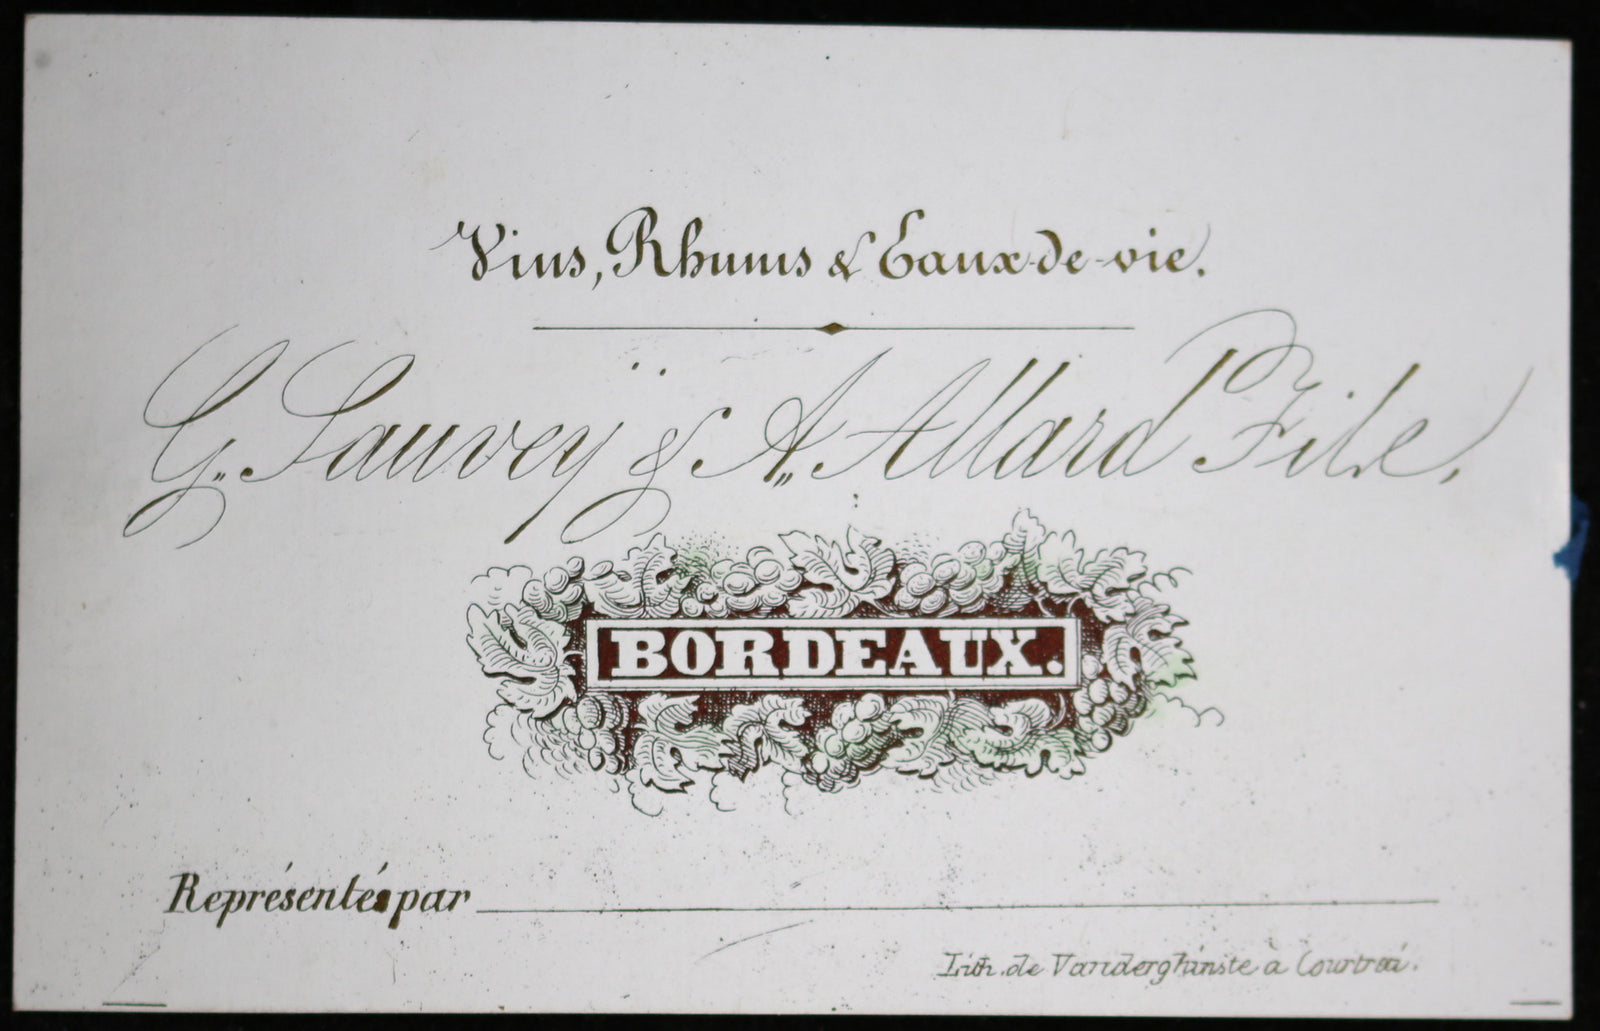 Vins, Rhums & Eaux-de-vie.
G. Sauveÿ & A. Allard Fils,
BORDEAUX.
Représentés par
Lith. de Vanderghinste à Courtrai.